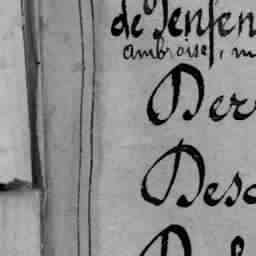 de Jensen
ambroise, m
Der
Desc